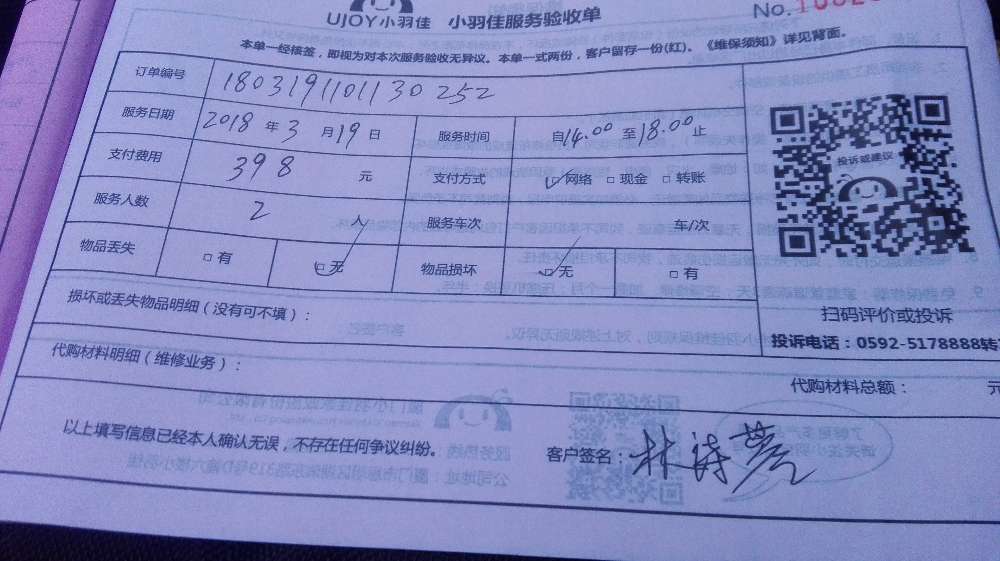 UJOY小羽佳 小羽佳服务验收单
No.
本单一经核签，即视为对本次服务验收无异议。本单一式两份，客户留存一份(红)。《维保须知》详见背面。
订单编号 1803191101130252
服务日期 2018 年 3 月 19 日 服务时间 自14.00 至18.00止
支付费用 398 元 支付方式 ☑网络 □现金 □转账
服务人数 2 人 服务车次 车/次
物品丢失 □有 ☑无 物品损坏 ☑无 □有
投诉或建议
损坏或丢失物品明细（没有可不填）：
扫码评价或投诉
投诉电话：0592-5178888转
代购材料明细（维修业务）：
代购材料总额： 元
以上填写信息已经本人确认无误，不存在任何争议纠纷。
客户签名：林诗